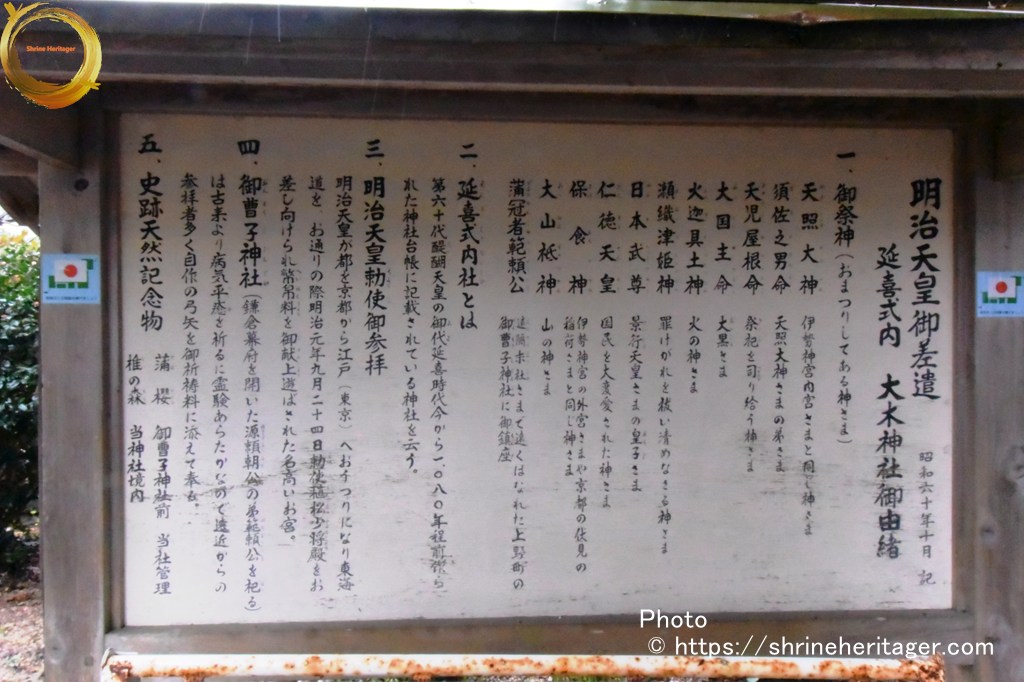 明治天皇御差遣
延喜式内 大木神社御由緒
昭和六十年十日 記
一. 御祭神(おまつりしてある神さま)
天照大神 伊勢神宮内宮さまと同じ神さま
須佐之男命 天照大神さまの弟さま
天児屋根命 祭祀を司り給う神さま
大国主命 大黒さま
火迦具土神 火の神さま
瀬織津姫神 罪けがれを祓い清めなさる神さま
日本武尊 景行天皇さまの皇子さま
仁徳天皇 国民を大変愛された神さま
保食神 伊勢神宮の外宮さまや京都の伏見の
稲荷さまと同し神さま
大山祗神 山の神さま
蒲冠者範頼公 遠く
はなれた上野町の
御曹子神社に御鎮座
二. 延喜式内社とは
第六十代醍醐天皇の御代延喜時代今から一〇八〇年程前
れた神社台帳に記載されている神社を云う。
三. 明治天皇勅使御参拝
明治天皇が都を京都から江戸(東京)へおうつりになり東海
道を お通りの際明治元年九月二十四日勅使植松少将殿をお
差し向けられ幣帛料を御献上遊ばされた名高いお宮。
四. 御曹子神社(鎌倉幕府を開いた源頼朝公の弟範頼公を祀る)
は古来より病気平癒を祈るに霊験あらたかなので遠近からの
参拝者多く自作の弓矢を御祈祷料に添えて奉る。
五. 史跡天然記念物 蒲櫻 御曹子神社前 当社管理
椎の森 当神社境内
Shrine Heritager
Photo
© https://shrineheritager.com